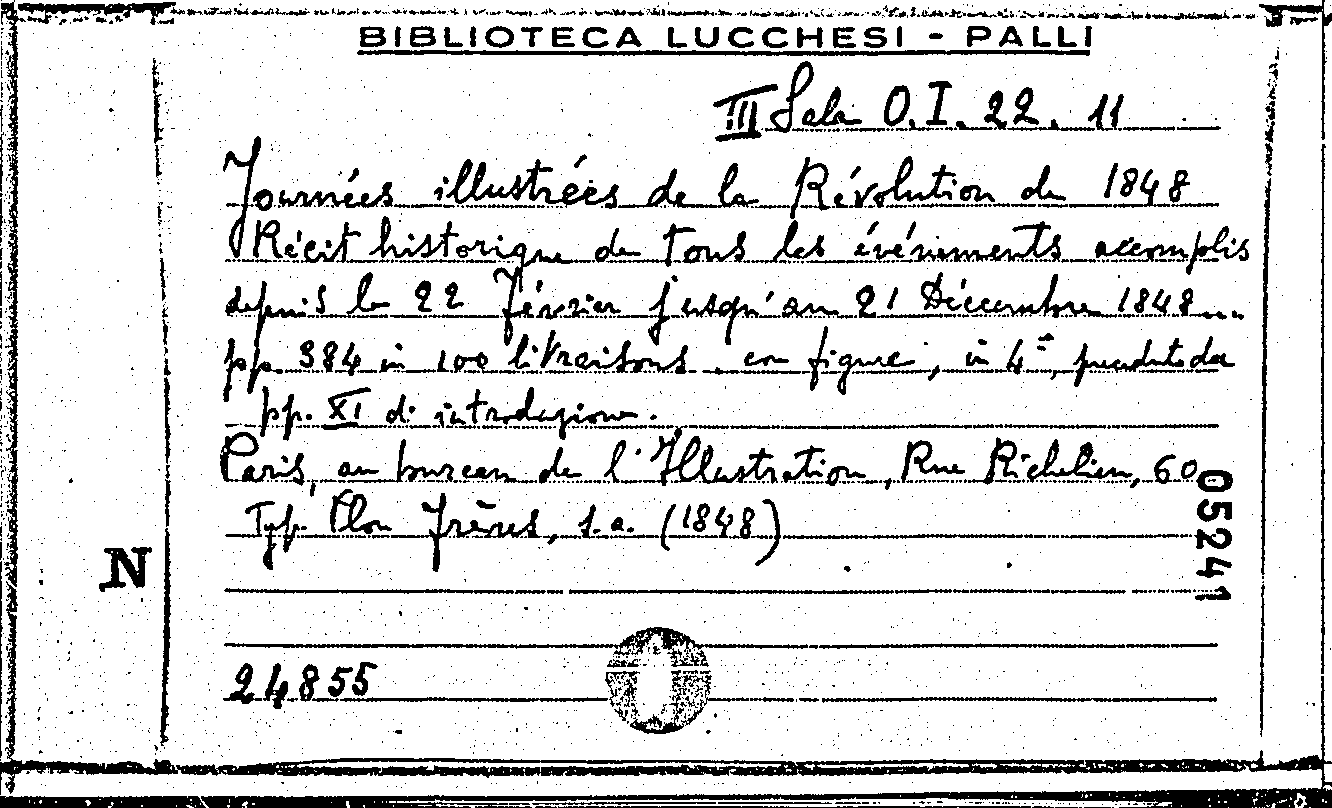 BIBLIOTECA LUCCHESI - PALLI
III Sala O.I. 22. 11
Journées illustrées de la Révolution de 1848
Récit historique de tous les événements accomplis
depuis le 22 Février jusqu'au 21 Décembre 1848...
pp. 384 in 100 livraisons. con figure, in 4º, precedute da
pp. XI di introduzione.
Paris, au bureau de l'Illustration, Rue Richelieu, 60
Typ. Plon Frères, s.a. (1848)
05241
N
24855